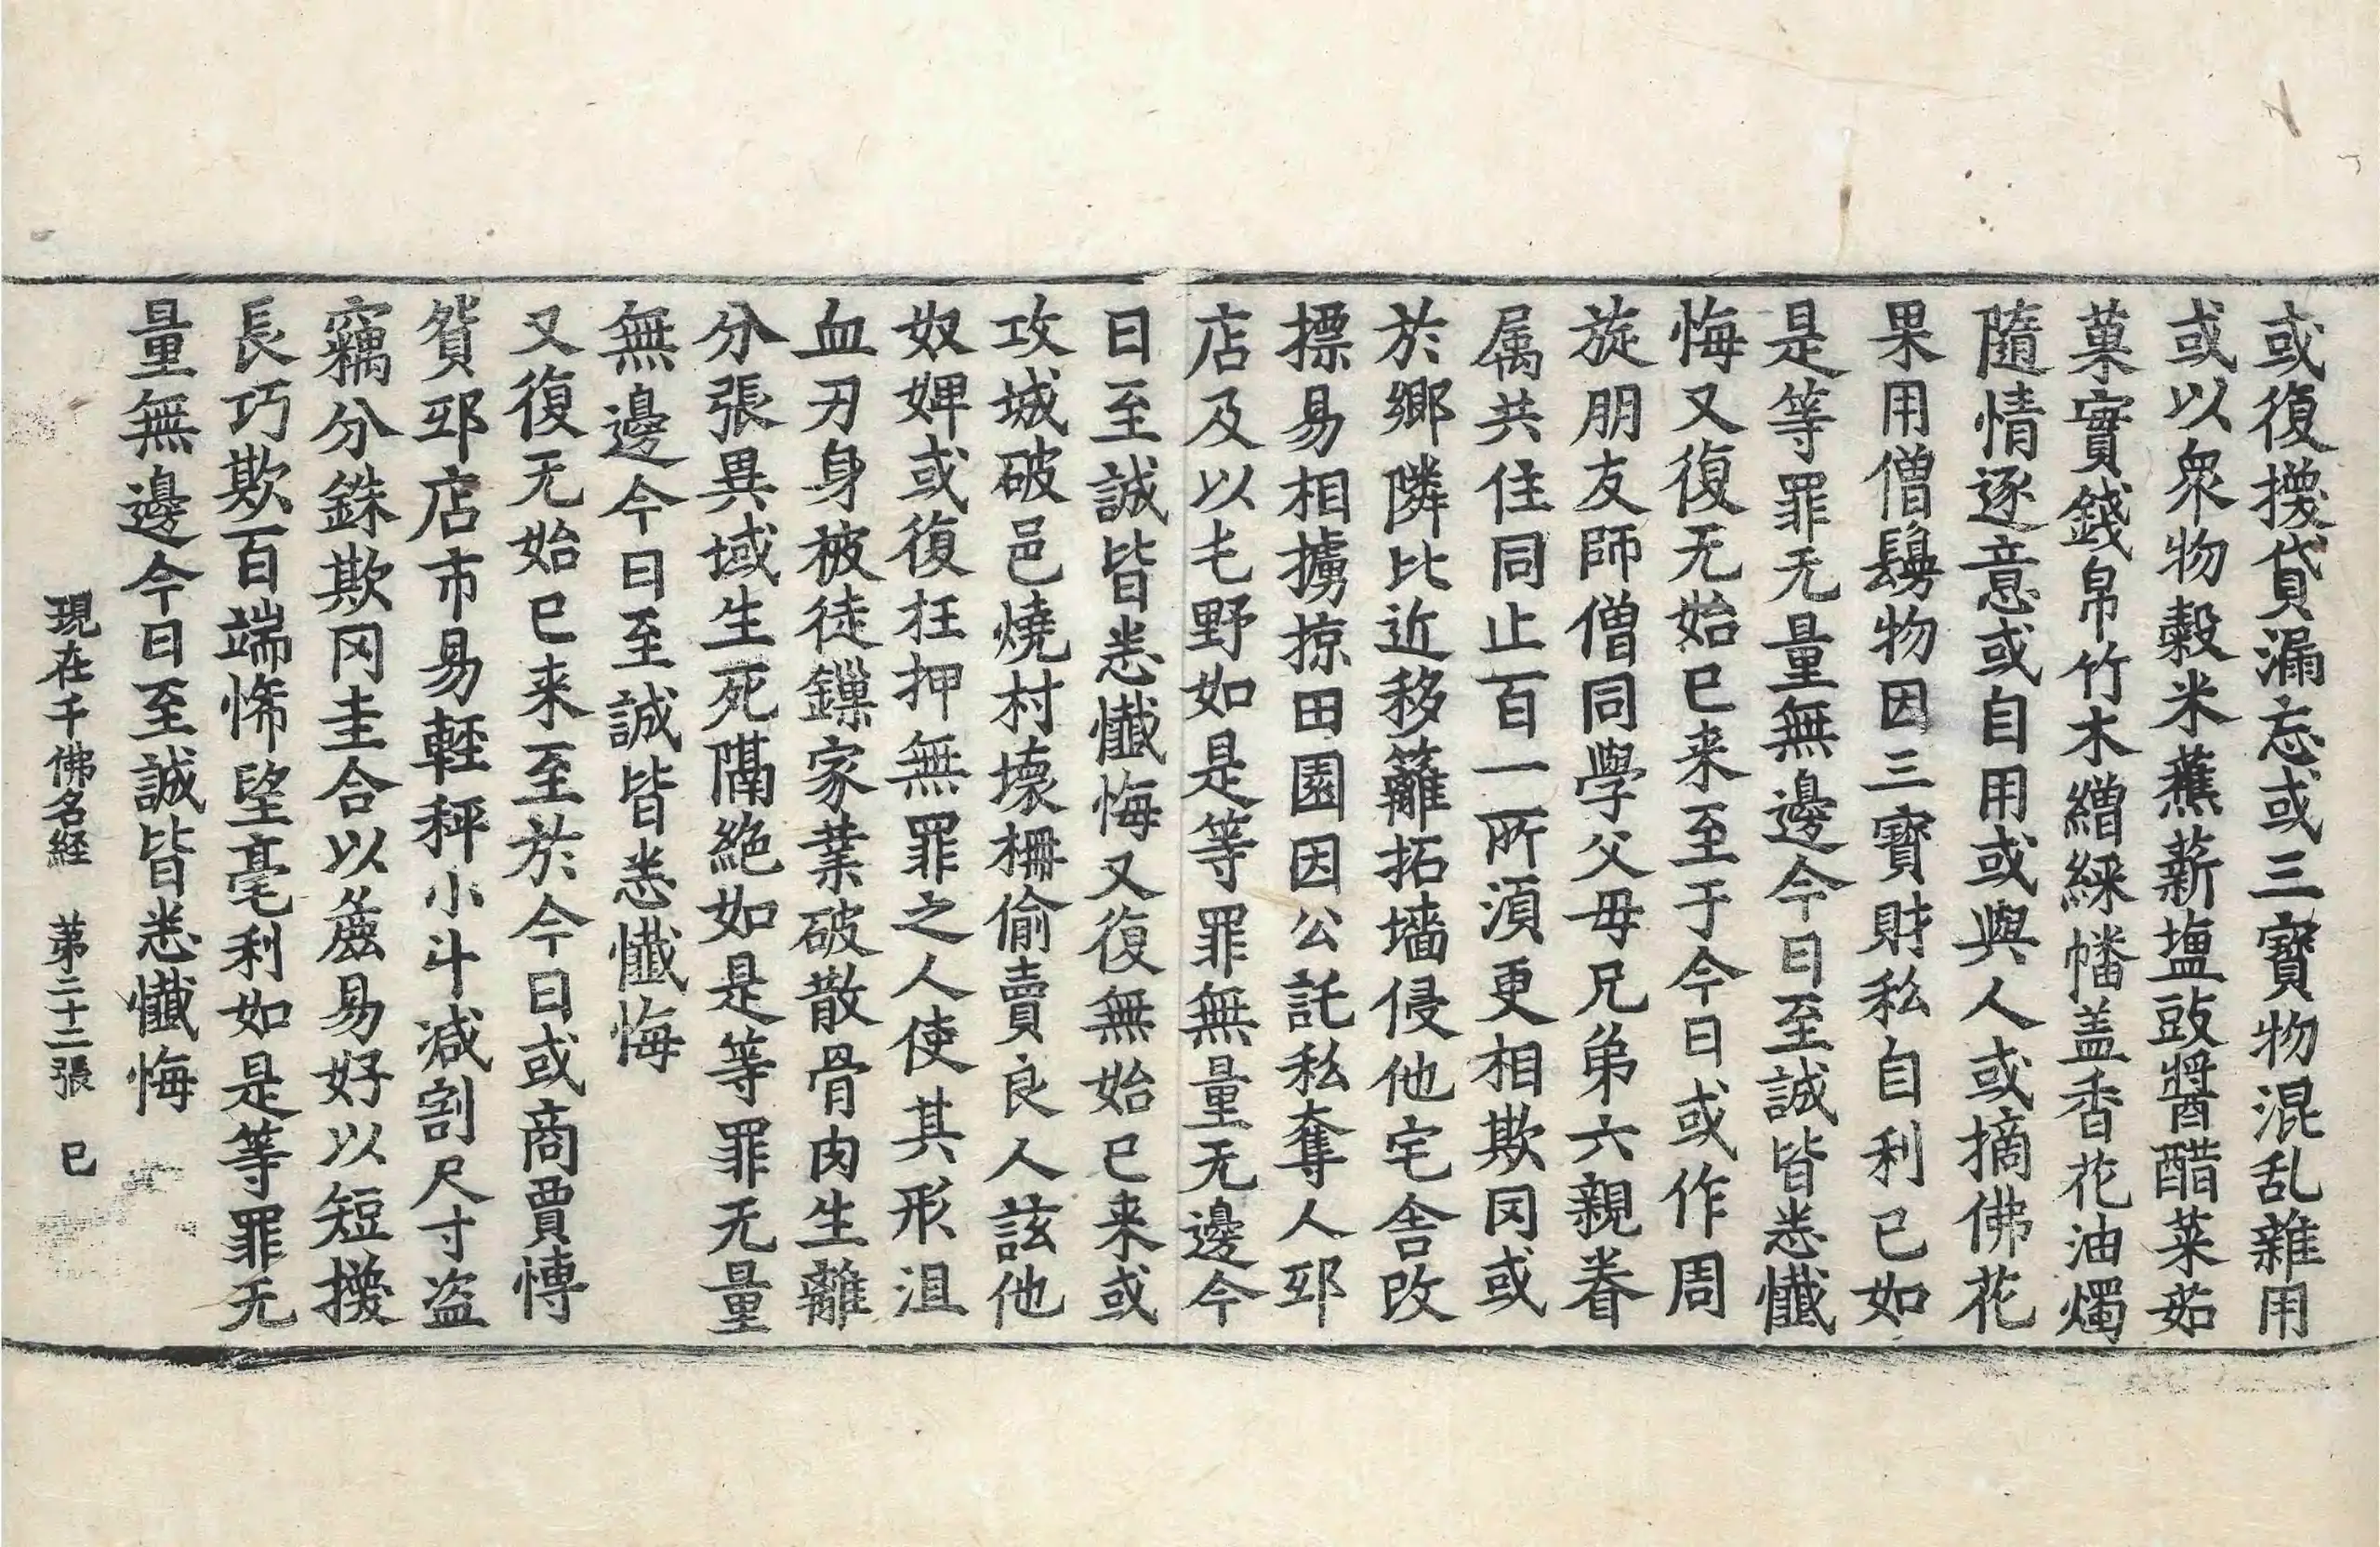 或復擾貸漏忘或三寶物混乱雜用
或以衆物穀米蕉薪塩豉醬醋菜茹
菓實錢帛竹木繒綵幡盖香花油燭
隨情逐意或自用或與人或摘佛花
果用僧鬘物因三寶財私自利已如
是等罪无量無邊今日至誠皆悉懺
悔又復无始已来至于今日或作周
旋朋友師僧同學父母兄弟六親眷
属共住同止百一所湏更相欺罔或
於鄉隣比近移籬拓墻侵他宅舍改
摽易相擄掠田園因公託私奪人邸
店及以乇野如是等罪無量无邊今
日至誠皆悉懺悔又復無始已来或
攻城破邑燒村壞柵偷賣良人該他
奴婢或復枉押無罪之人使其形沮
血刃身被徒鏁家業破散骨肉生離
分張異域生死隔絶如是等罪无量
無邊今日至誠皆悉懺悔
又復无始已来至於今日或商賈慱
貨邸店市易輊秤小斗減割尺寸盗
竊分銖欺罔圭合以麁易好以短擾
長巧欺百端悕望毫利如是等罪无
量無邊今日至誠皆悉懺悔
現在千佛名経 苐二十二張 已